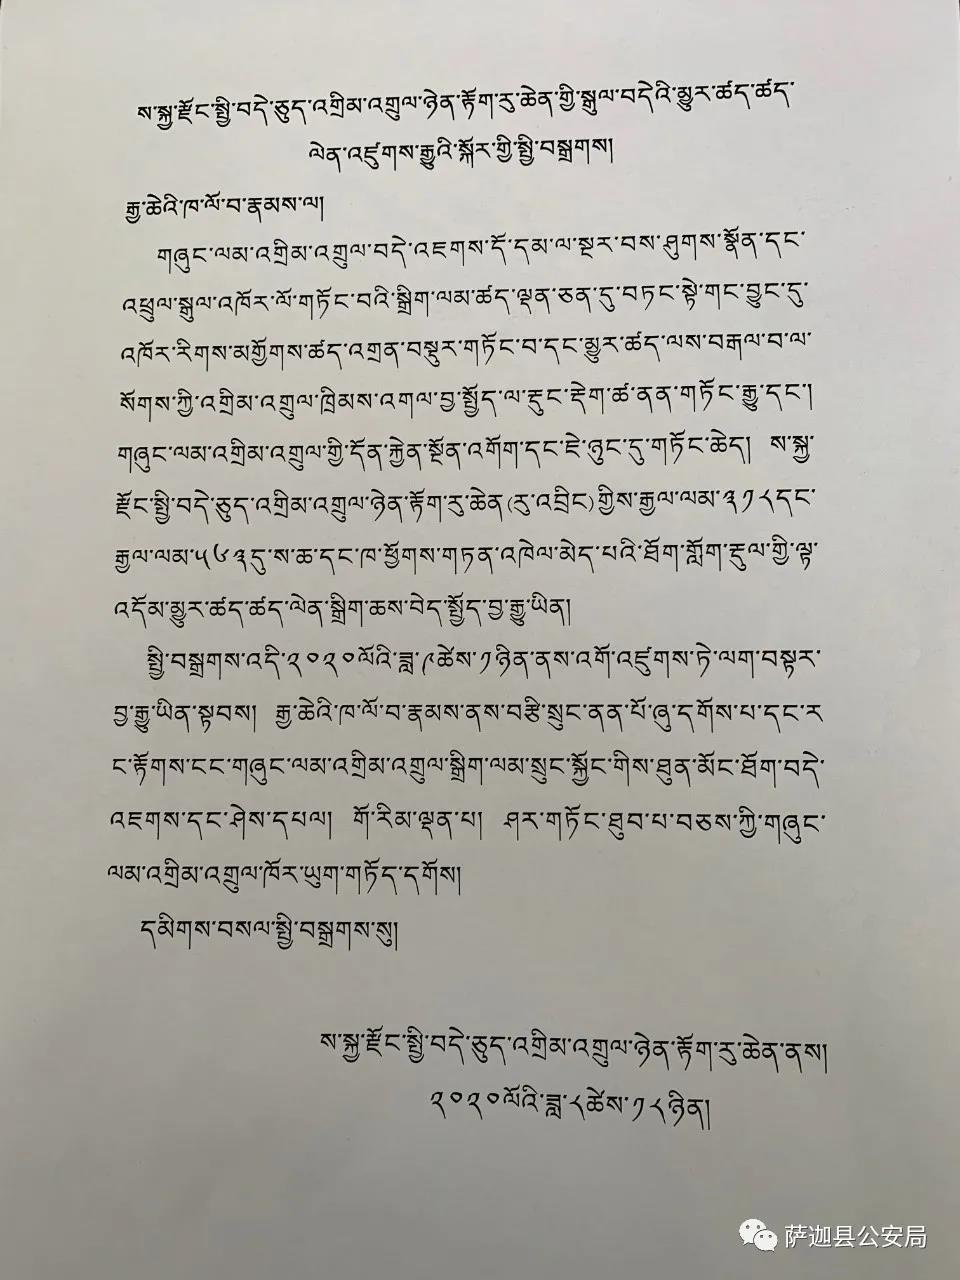 ས་སྐྱ་རྫོང་སྤྱི་བདེ་ཅུད་འགྲིམ་འགྲུལ་ཉེན་རྟོག་རུ་ཆེན་གྱི་སྒུལ་བདེའི་མྱུར་ཚད་ཚད་
ལེན་འཛུགས་རྒྱུའི་སྐོར་གྱི་སྤྱི་བསྒྲགས།
རྒྱ་ཆེའི་ཁ་ལོ་བ་རྣམས་ལ།
གཞུང་ལམ་འགྲིམ་འགྲུལ་བདེ་འཇགས་དོ་དམ་ལ་སྔར་བས་ཤུགས་སྣོན་དང་
འཕྲུལ་སྒུལ་འཁོར་ལོ་གཏོང་བའི་སྒྲིག་ལམ་ཚད་ལྡན་ཅན་དུ་བཏང་སྟེ་གང་བྱུང་དུ་
འཁོར་རིགས་མགྱོགས་ཚད་འགྲན་བསྡུར་གཏོང་བ་དང་མྱུར་ཚད་ལས་བརྒལ་བ་ལ་
སོགས་ཀྱི་འགྲིམ་འགྲུལ་ཁྲིམས་འགལ་བྱ་སྤྱོད་ལ་རྡུང་རྡེག་ཚ་ནན་གཏོང་རྒྱུ་དང་།
གཞུང་ལམ་འགྲིམ་འགྲུལ་གྱི་དོན་རྐྱེན་སྔོན་འགོག་དང་ཇེ་ཉུང་དུ་གཏོང་ཆེད། ས་སྐྱ་
རྫོང་སྤྱི་བདེ་ཅུད་འགྲིམ་འགྲུལ་ཉེན་རྟོག་རུ་ཆེན(རུ་འབྲིང)གྱིས་རྒྱལ་ལམ་༣༡༨དང་
རྒྱལ་ལམ་༥༦༣དུ་ས་ཆ་དང་ཁ་ཕྱོགས་གཏན་འཁེལ་མེད་པའི་ཐོག་གློག་རྡུལ་གྱི་ལྟ་
འདོམ་མྱུར་ཚད་ཚད་ལེན་སྒྲིག་ཆས་བེད་སྤྱོད་བྱ་རྒྱུ་ཡིན།
སྤྱི་བསྒྲགས་འདི་༢༠༢༠ལོའི་ཟླ་༩ཚེས་༡ཉིན་ནས་འགོ་འཛུགས་ཏེ་ལག་བསྟར་
བྱ་རྒྱུ་ཡིན་སྟབས། རྒྱ་ཆེའི་ཁ་ལོ་བ་རྣམས་ནས་བརྩི་སྲུང་ནན་པོ་ཞུ་དགོས་པ་དང་ར
ང་རྟོགས་ངང་གཞུང་ལམ་འགྲིམ་འགྲུལ་སྒྲིག་ལམ་སྲུང་སྐྱོང་གིས་ཐུན་མོང་ཐོག་བདེ་
འཇགས་དང་ཤེས་དཔལ། གོ་རིམ་ལྡན་པ། ཤར་གཏོང་ཐུབ་པ་བཅས་ཀྱི་གཞུང་
ལམ་འགྲིམ་འགྲུལ་ཁོར་ཡུག་གཏོད་དགོས།
དམིགས་བསལ་སྤྱི་བསྒྲགས་སུ།
ས་སྐྱ་རྫོང་སྤྱི་བདེ་ཅུད་འགྲིམ་འགྲུལ་ཉེན་རྟོག་རུ་ཆེན་ནས།
༢༠༢༠ལོའི་ཟླ་༨ཚེས་༡༨ཉིན།
萨迦县公安局